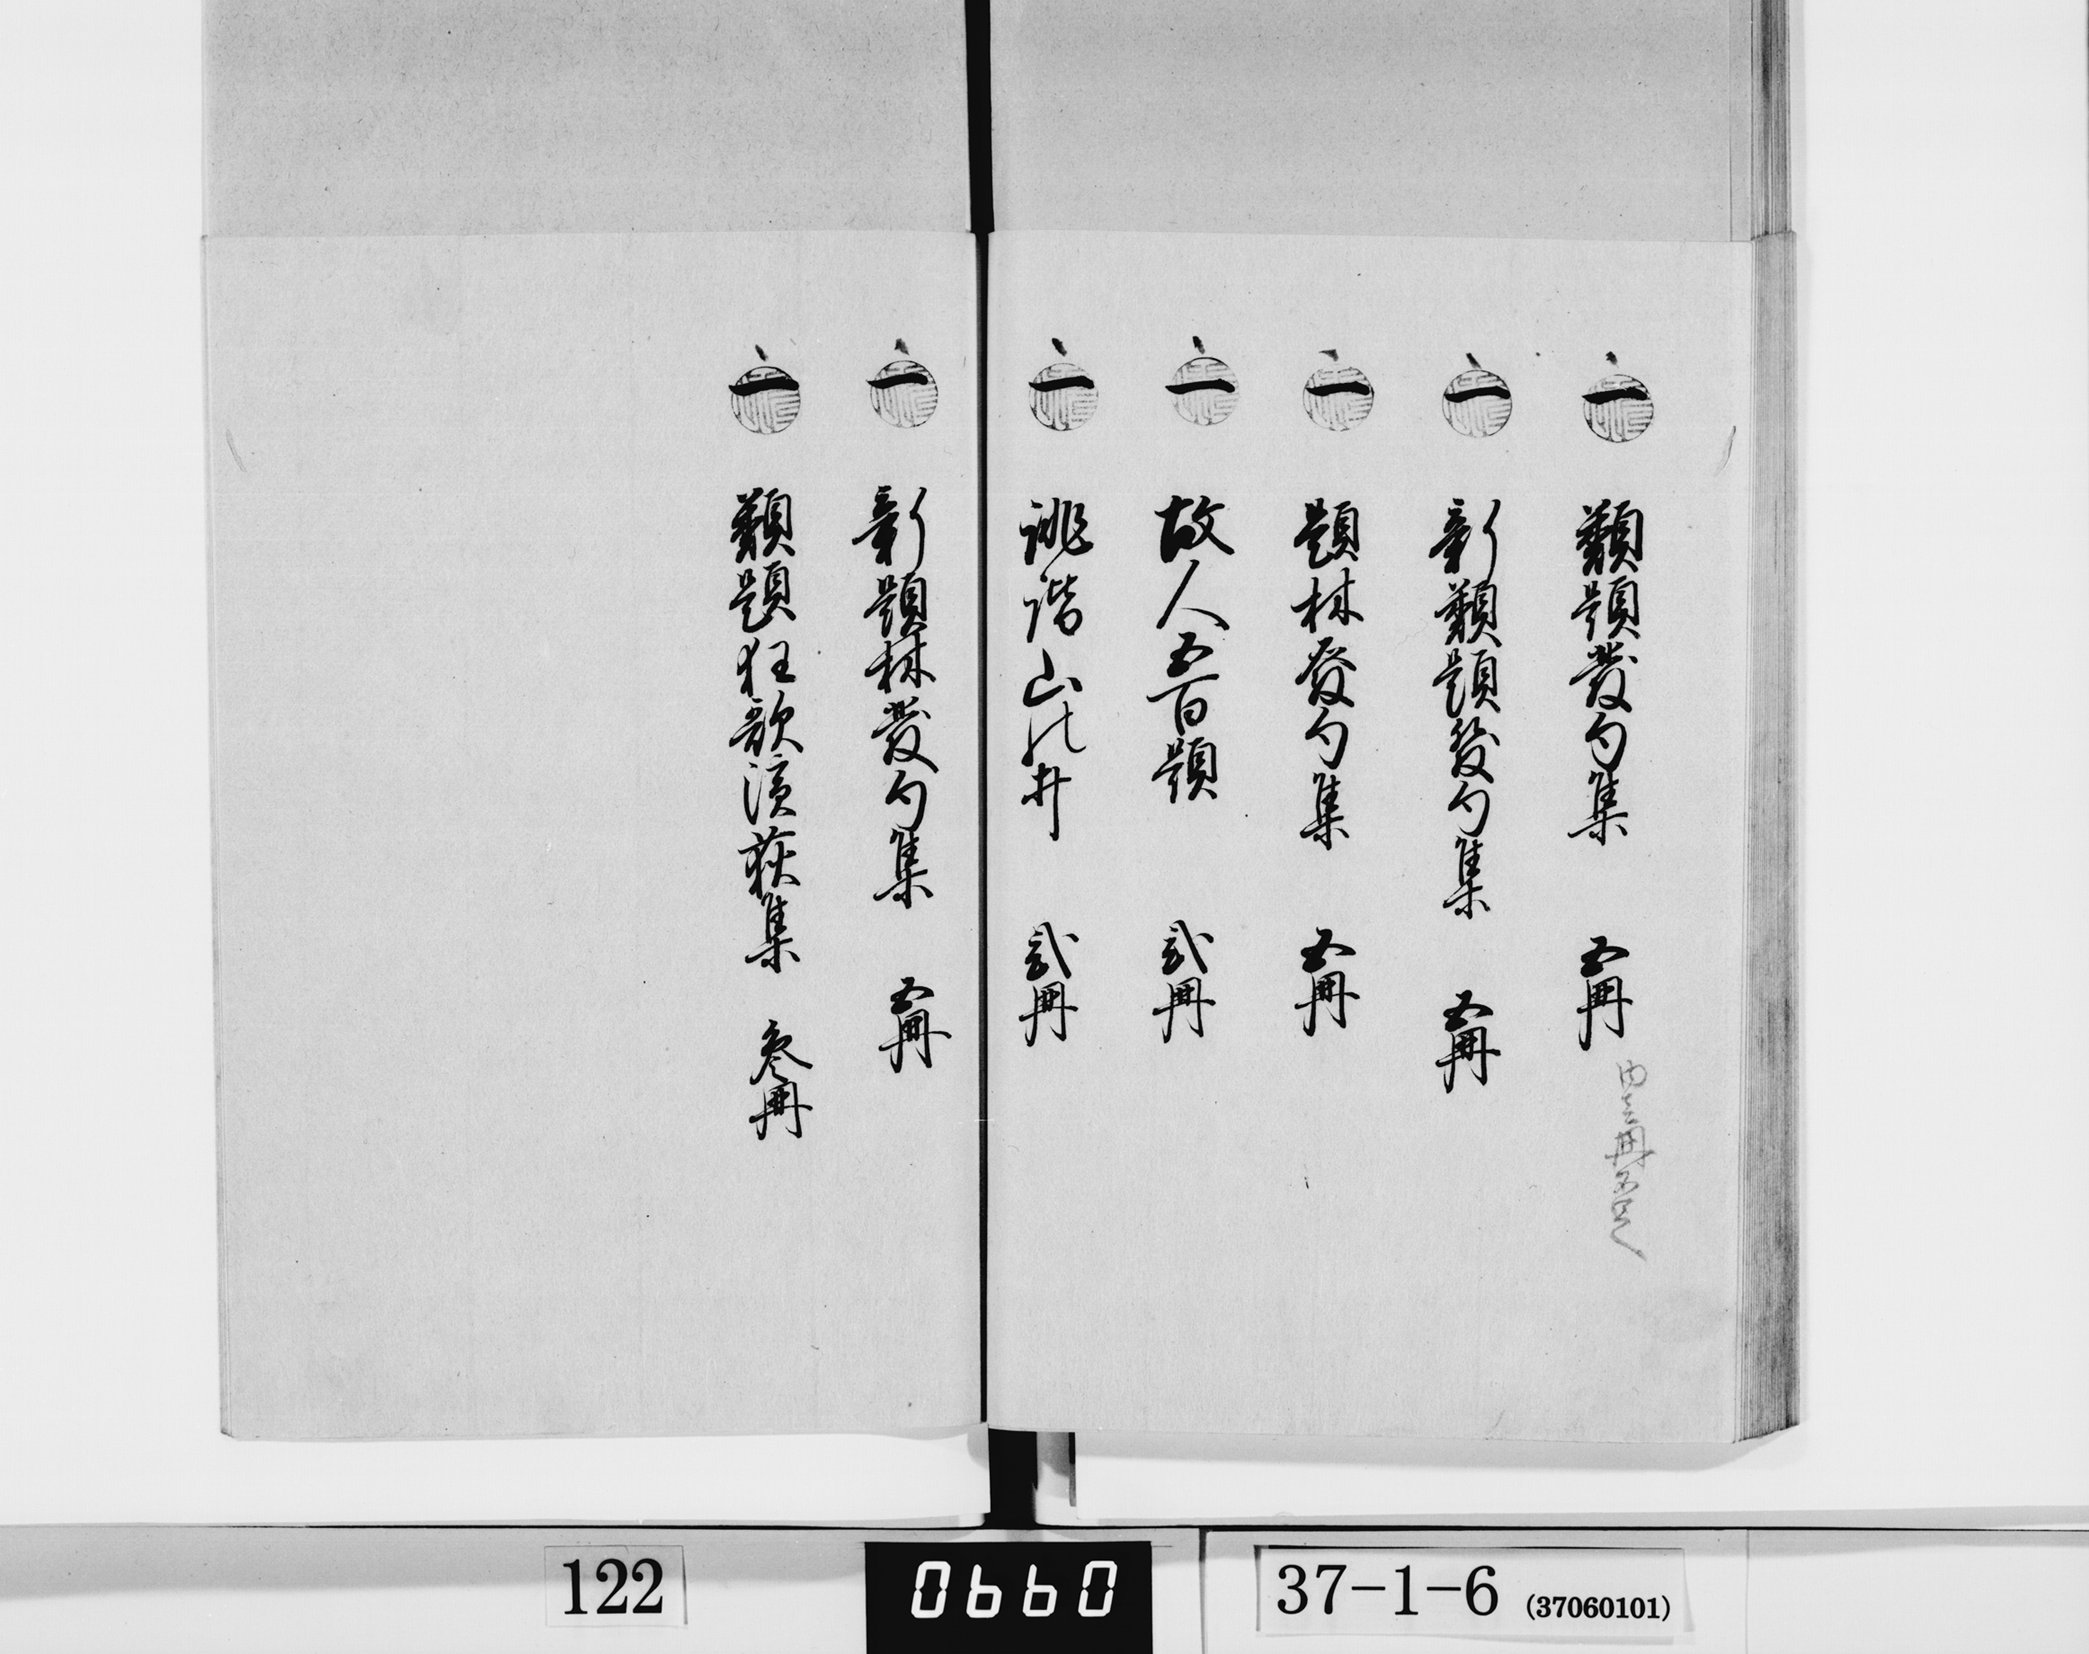 一 類題發句集 五冊
一 新類題發句集 五冊
一 題林發句集 五冊
一 故人五百題 貳冊
一 誹諧山の井 貳冊
一 新題林發句集 五冊
一 類題狂歌濱荻集 參冊
122
0660
37-1-6 (37060101)